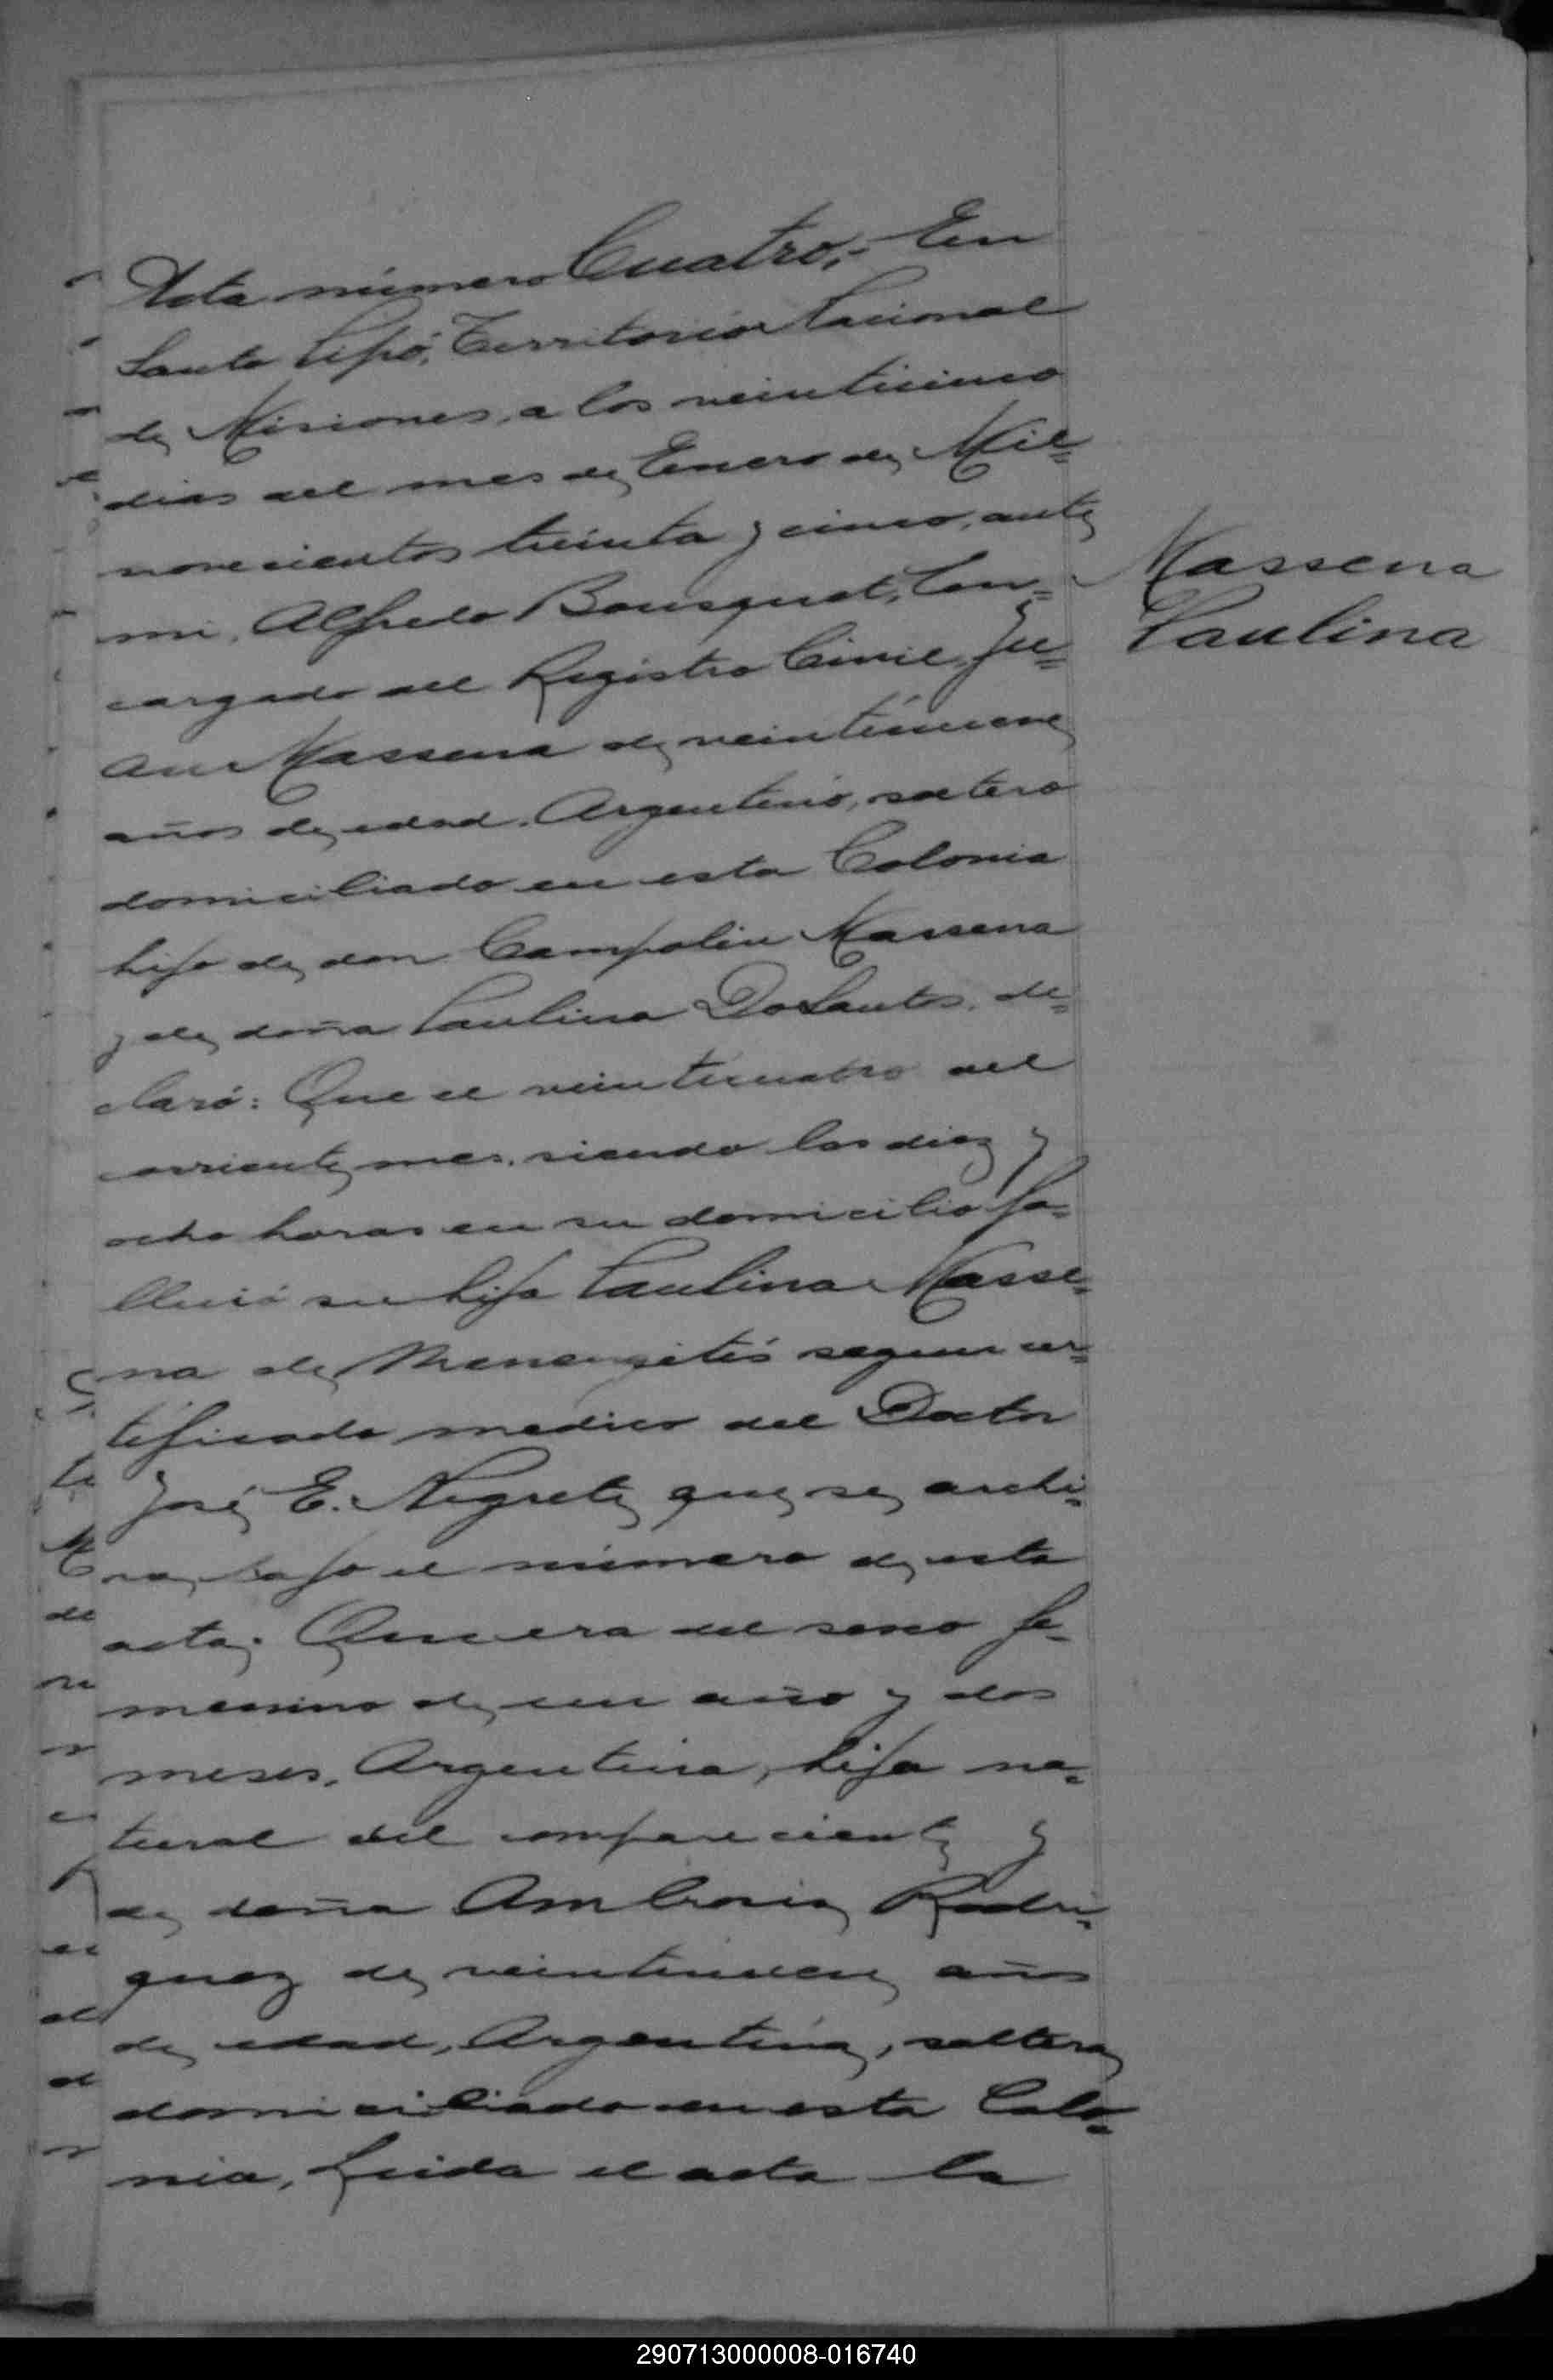 Acta número Cuatro,- En
Santo Pipó, Territorio Nacional
de Misiones, a los veinticinco
dias del mes de Enero de Mil
novecientos treinta y cinco, ante
mi, Alfredo Bousquet, En=
cargado del Registro Civil, Ju=
an Massena de veintinueve
años de edad. Argentino, soltero
domiciliado en esta Colonia
hijo de don Campolin Massena
y de doña Paulina DoSantos, de=
claró: Que el veinticuatro del
corriente mes, siendo las diez y
ocho horas en su domicilio fa=
lleció su hija Paulina Masse=
na de Menengitis segun cer=
tificado medico del Doctor
José E. Negrete que se archi=
va bajo el número de esta
acta; Que era del sexo fe=
menino de un año y dos
meses, Argentina, hija na=
tural del compareciente y
de doña Ambrosia Rodri=
guez de veintinueve años
de edad, Argentina, soltera
domiciliada en esta Colo=
nia, Leida el acta la
Massena
Paulina
290713000008-016740